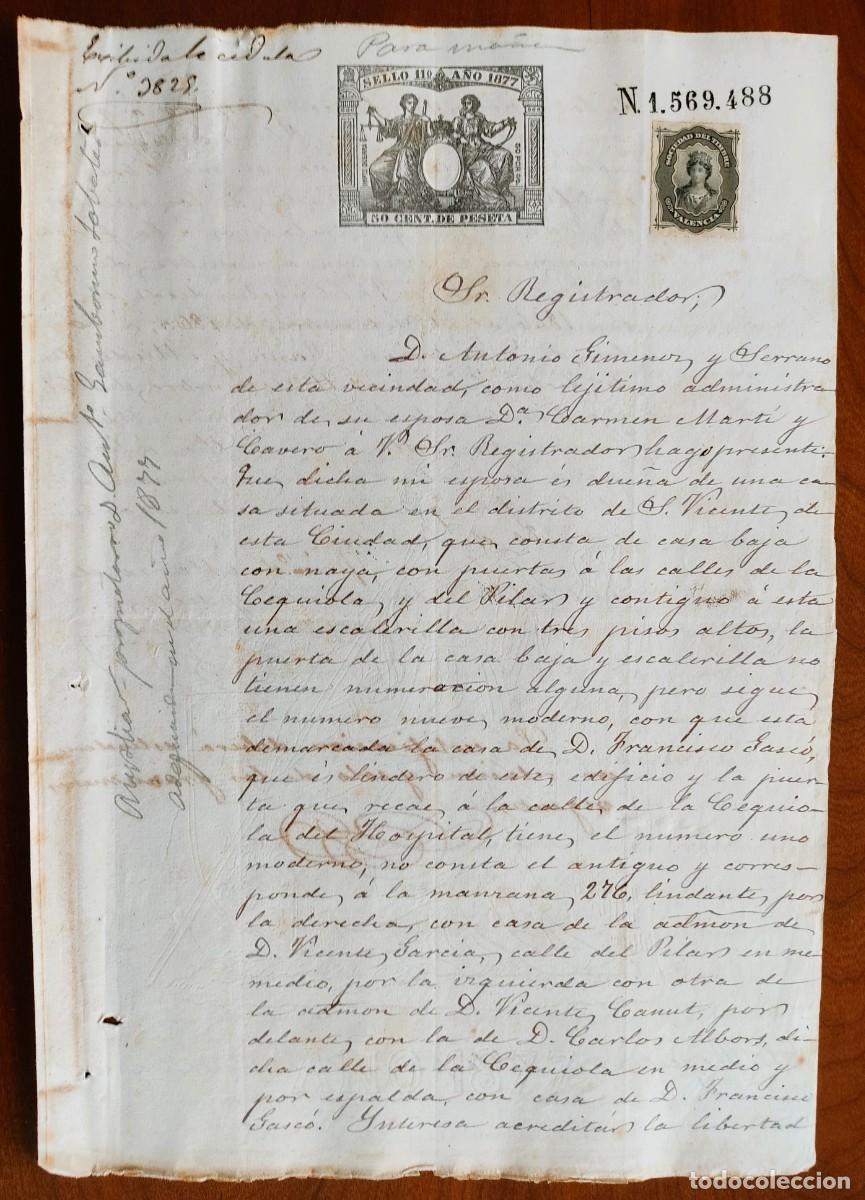 Exibida la cédula
Nº 3825.
Para
SELLO 11º AÑO 1877
50 CENT. DE PESETA
N.1.569.488
SOCIEDAD DEL TIMBRE
VALENCIA
Sr. Registrador;
D. Antonio Gimenez y Serrano
de esta vecindad, como lejitimo administra
dor de su esposa Dª Carmen Martí y
Cavero á V. Sr. Registrador hago presente:
Que dicha mi esposa és dueña de una ca
sa situada en el distrito de S. Vicente, de
esta Ciudad, que consta de casa baja
con naya, con puertas á las calles de la
Cequiola, y del Pilar y contiguo á esta
una escalerilla con tres pisos altos, la
puerta de la casa baja y escalerilla no
tienen numeracion alguna, pero sigue
el numero nueve moderno, con que esta
demarcada la casa de D. Francisco Gascó,
que és lindero de este edificio y la puer
ta que recae á la calle de la Cequio-
la del Hospital, tiene el numero uno
moderno, no consta el antiguo y corres
ponde á la manzana 276. lindante por
la derecha, con casa de la admon de
D. Vicente Garcia, calle del Pilar en me
medio, por la izquierda con otra de
la admon de D. Vicente Canut, por
delante con la de D. Carlos Albors, di-
cha calle de la Cequiola en medio y
por espalda, con casa de D. Francisco
Gascó. Ynteresa acreditar la libertad
año 1877
todocoleccion